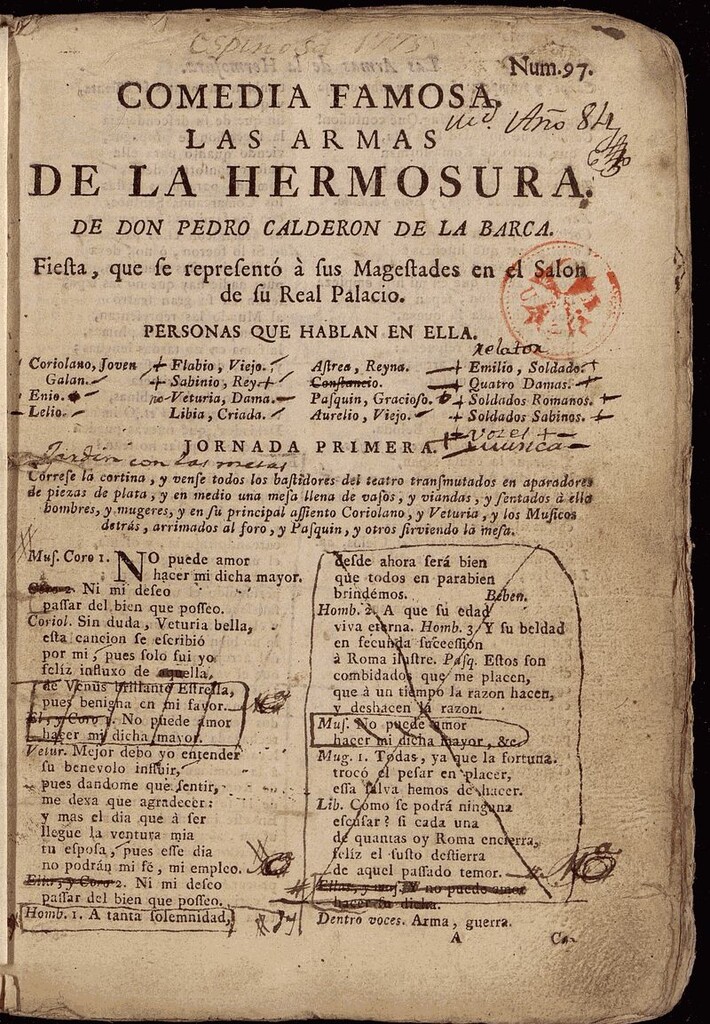 Espinosa 1775
Num.97.
COMEDIA FAMOSA.
LAS ARMAS
Año 84
DE LA HERMOSURA.
DE DON PEDRO CALDERON DE LA BARCA.
Fiesta, que se representó à sus Magestades en el Salon
de su Real Palacio.
PERSONAS QUE HABLAN EN ELLA.
relator
Coriolano, Joven
Galan.
Enio.
Lelio.
Flabio, Viejo.
Sabinio, Rey.
no Veturia, Dama.
Libia, Criada.
Astrea, Reyna.
Constancio.
Pasquin, Gracioso.
Aurelio, Viejo.
Emilio, Soldado.
Quatro Damas.
Soldados Romanos.
Soldados Sabinos.
vozes
musica
JORNADA PRIMERA.
Jardin con las mesas
Correse la cortina, y vense todos los bastidores del teatro transmutados en aparadores
de piezas de plata, y en medio una mesa llena de vasos, y viandas, y sentados à ella
hombres, y mugeres, y en su principal assiento Coriolano, y Veturia, y los Musicos
detrás, arrimados al foro, y Pasquin, y otros sirviendo la mesa.
Mus. Coro 1. NO puede amor
hacer mi dicha mayor.
Coro 2. Ni mi deseo
passar del bien que posseo.
Coriol. Sin duda, Veturia bella,
esta cancion se escribió
por mi, pues solo fui yo
feliz influxo de aquella,
de Venus brillante Estrella,
pues benigna en mi favor.
El, y Coro 1. No puede amor
hacer mi dicha mayor.
Vetur. Mejor debo yo entender
su benevolo influir,
pues dandome que sentir,
me dexa que agradecer:
y mas el dia que à ser
llegue la ventura mia
tu esposa, pues esse dia
no podrán mi fé, mi empleo.
Ella, y Coro 2. Ni mi deseo
passar del bien que posseo.
Homb. 1. A tanta solemnidad,
desde ahora será bien
que todos en parabien
brindémos. Beben.
Homb. 2. A que su edad
viva eterna. Homb. 3. Y su beldad
en fecunda sucession
à Roma ilustre. Pasq. Estos son
combidados que me placen,
que à un tiempo la razon hacen,
y deshacen la razon.
Mus. No puede amor
hacer mi dicha mayor, &c.
Mug. 1. Todas, ya que la fortuna
trocó el pesar en placer,
essa salva hemos de hacer.
Lib. Cómo se podrá ninguna
escusar? si cada una
de quantas oy Roma encierra,
feliz el susto destierra
de aquel passado temor.
no puede amor
hacer mi dicha.
Dentro voces. Arma, guerra.
A